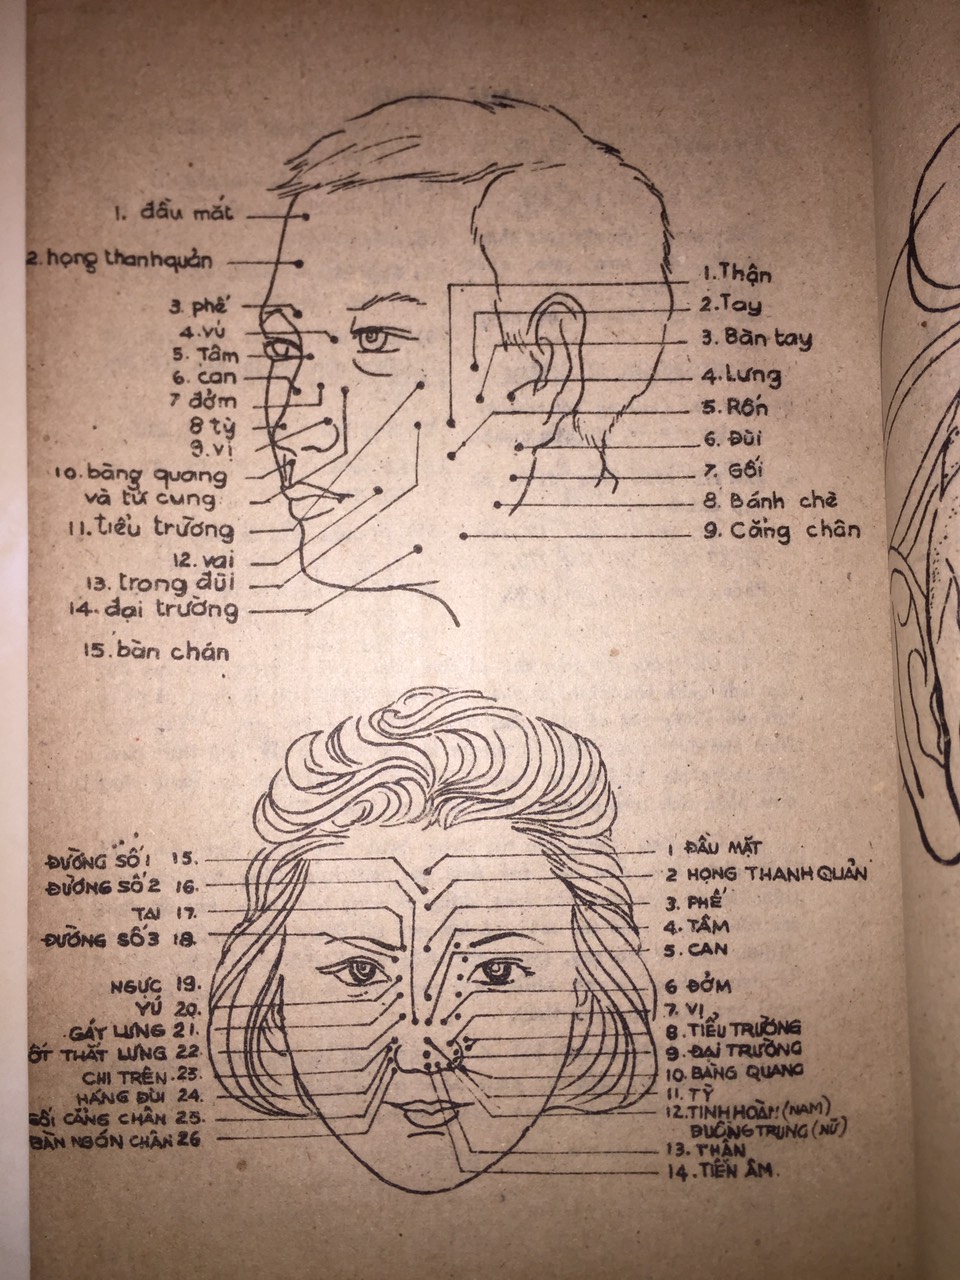 1. đầu mắt
2. họng thanh quản
3. phế
4. vú
5. Tâm
6. can
7 đởm
8 tỳ
9. vị
10. bàng quang
và tử cung
11. tiểu trường
12. vai
13. trong đùi
14. đại trường
15. bàn chán
1. Thận
2. Tay
3. Bàn tay
4. Lưng
5. Rốn
6. Đùi
7. Gối
8. Bánh chè
9. Cẳng chân
ĐƯỜNG SỐ 1 15.
ĐƯỜNG SỐ 2 16.
TAI 17.
ĐƯỜNG SỐ 3 18.
NGỰC 19.
VÚ 20.
GÁY LƯNG 21.
THẮT LƯNG 22.
CHI TRÊN. 23.
HÁNG ĐÙI 24.
CẲNG CHÂN 25.
BÀN NGÓN CHÂN 26
1 ĐẦU MẶT
2 HỌNG THANH QUẢN
3. PHẾ
4. TÂM
5. CAN
6 ĐỞM
7. VỊ
8. TIỂU TRƯỜNG
9. ĐẠI TRƯỜNG
10. BÀNG QUANG
11. TỲ
12. TINH HOÀN (NAM)
TRỨNG (NỮ)
13. THẬN
14. TIỀN ÂM.